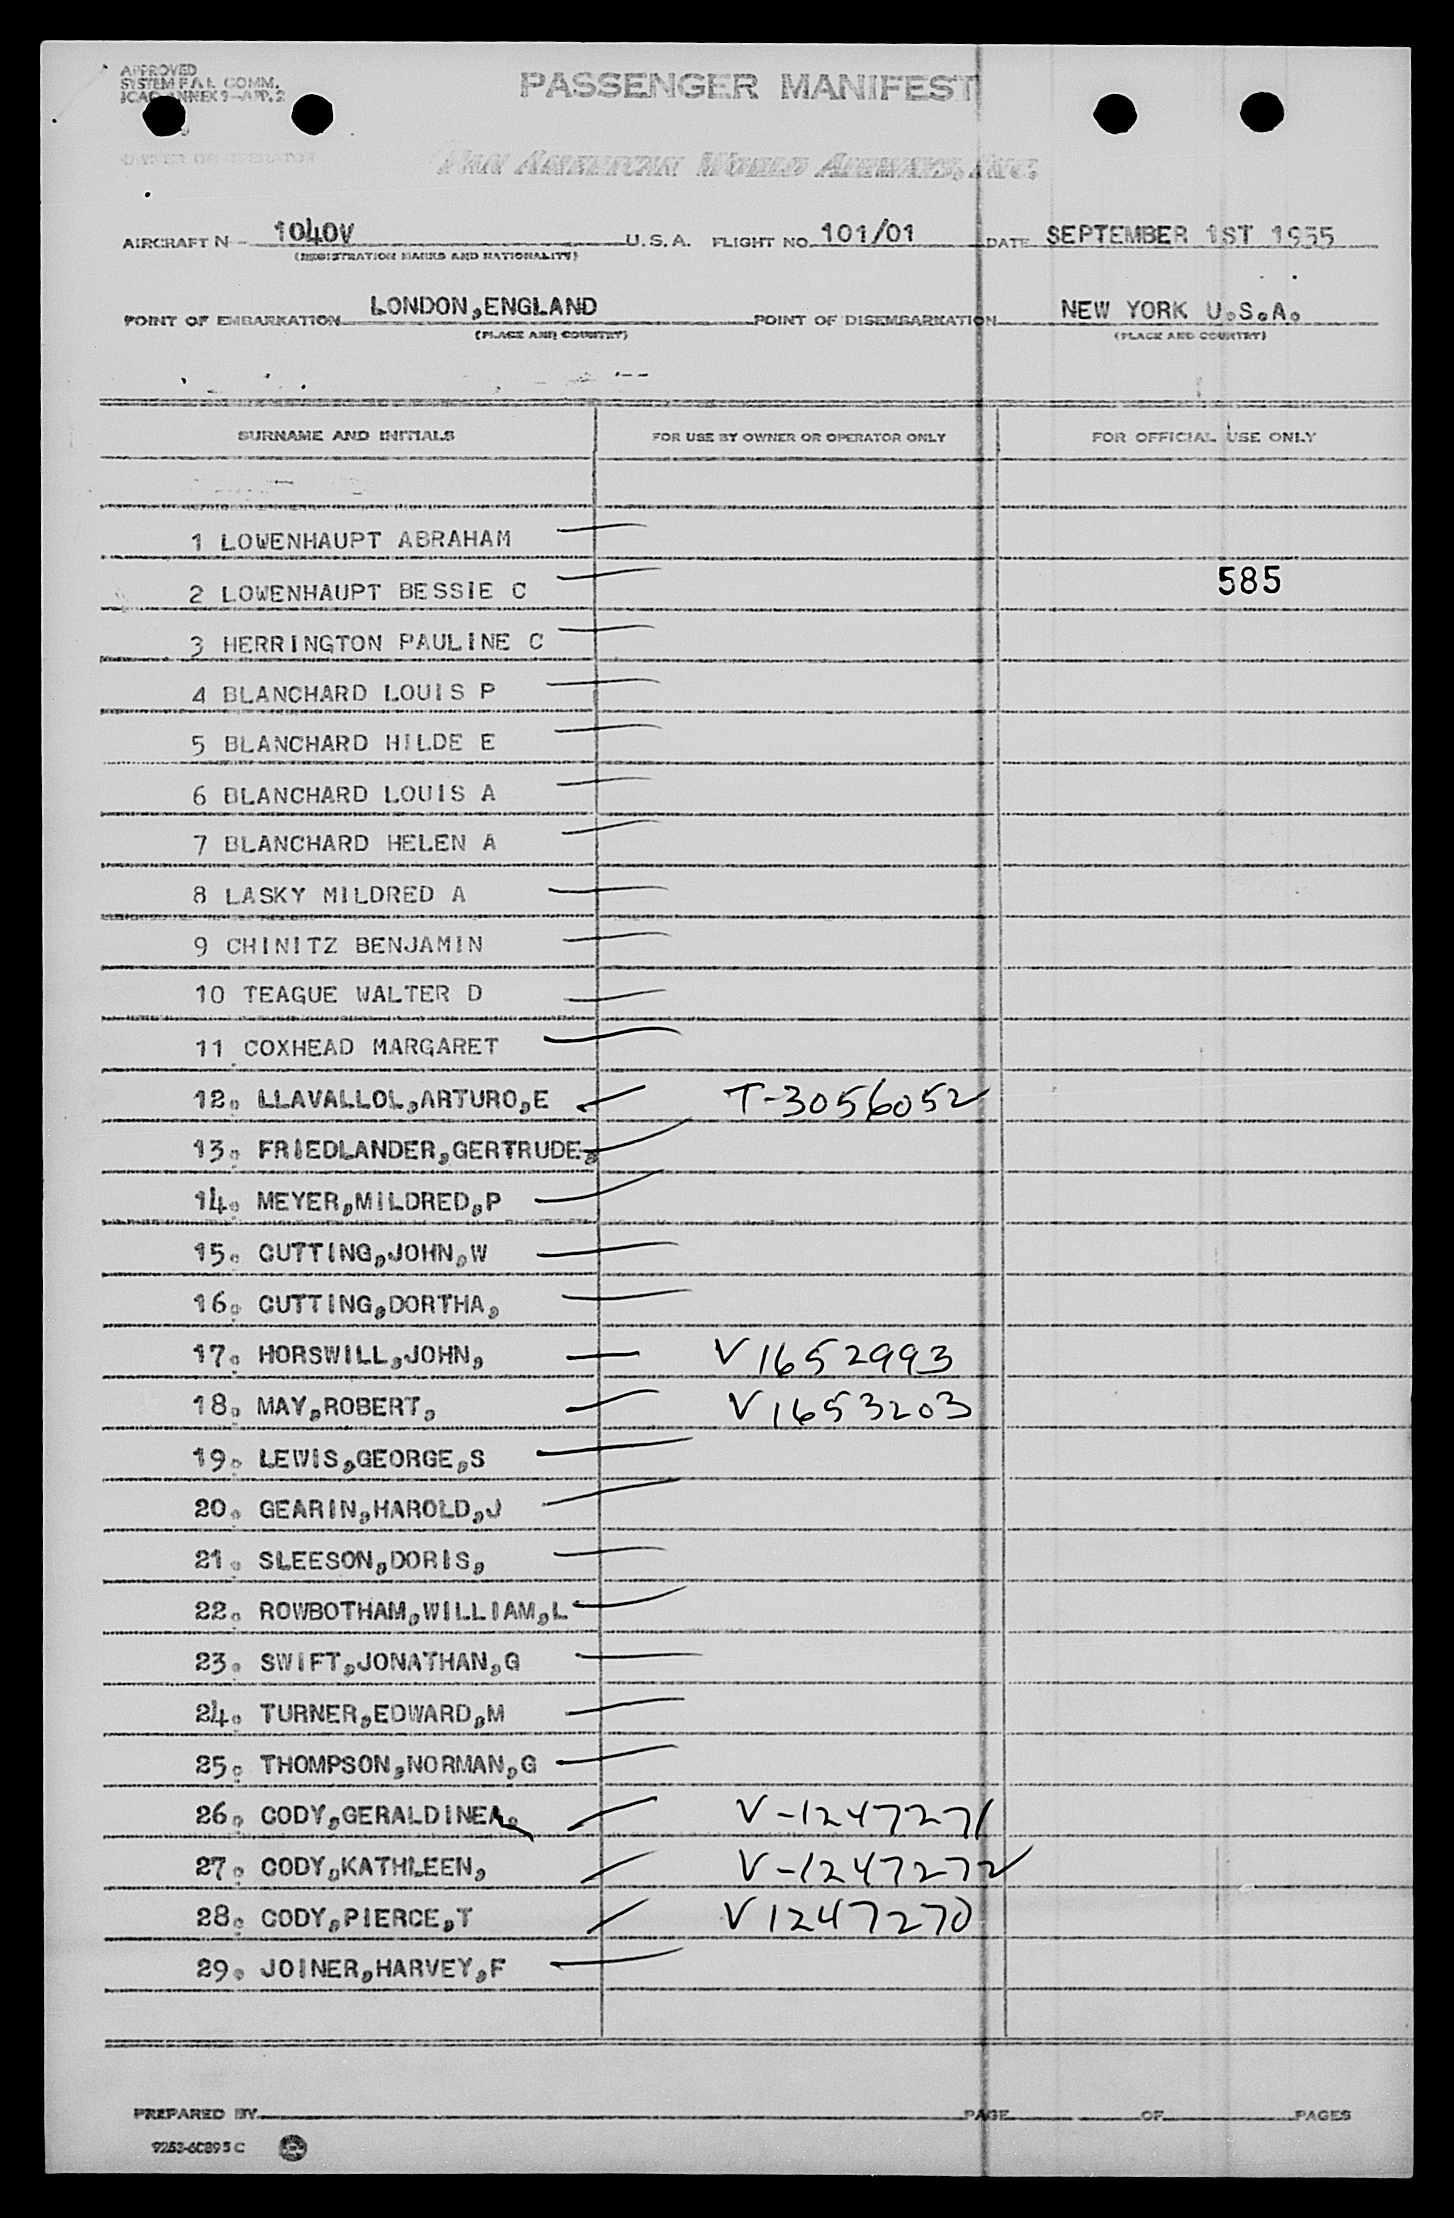 APPROVED
SYSTEM F.A.L. COMM.
ICAO ANNEX 9—APP. 2
PASSENGER MANIFEST
OWNER OR OPERATOR
PAN AMERICAN WORLD AIRWAYS, INC.
AIRCRAFT N - 1040V U.S.A. FLIGHT NO. 101/01 DATE SEPTEMBER 1ST 1955
(REGISTRATION MARKS AND NATIONALITY)
POINT OF EMBARKATION LONDON,ENGLAND POINT OF DISEMBARKATION NEW YORK U.S.A.
(PLACE AND COUNTRY) (PLACE AND COUNTRY)
SURNAME AND INITIALS FOR USE BY OWNER OR OPERATOR ONLY FOR OFFICIAL USE ONLY
1 LOWENHAUPT ABRAHAM
2 LOWENHAUPT BESSIE C 585
3 HERRINGTON PAULINE C
4 BLANCHARD LOUIS P
5 BLANCHARD HILDE E
6 BLANCHARD LOUIS A
7 BLANCHARD HELEN A
8 LASKY MILDRED A
9 CHINITZ BENJAMIN
10 TEAGUE WALTER D
11 COXHEAD MARGARET
12. LLAVALLOL,ARTURO,E T-3056052
13. FRIEDLANDER,GERTRUDE,
14. MEYER,MILDRED,P
15. CUTTING,JOHN,W
16. CUTTING,DORTHA,
17. HORSWILL,JOHN, V1652993
18. MAY,ROBERT, V1653203
19. LEWIS,GEORGE,S
20. GEARIN,HAROLD,J
21. SLEESON,DORIS,
22. ROWBOTHAM,WILLIAM,L
23. SWIFT,JONATHAN,G
24. TURNER,EDWARD,M
25. THOMPSON,NORMAN,G
26. CODY,GERALDINEA. V-1247271
27. CODY,KATHLEEN, V-1247272
28. CODY,PIERCE,T V1247270
29. JOINER,HARVEY,F
PREPARED BY PAGE OF PAGES
9253-60895 C